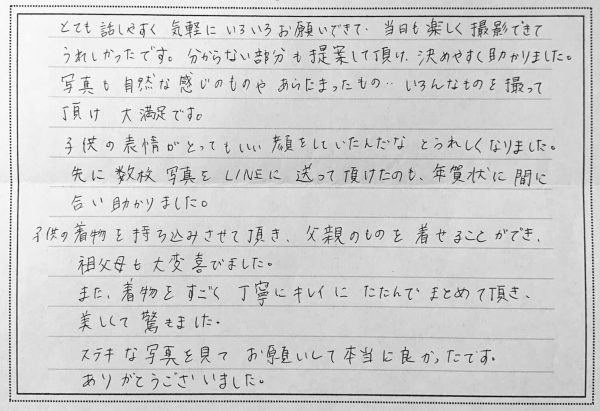 とても話しやすく気軽にいろいろお願いできて、当日も楽しく撮影できて
うれしかったです。分からない部分も提案して頂け、決めやすく助かりました。
写真も自然な感じのものや あらたまったもの‥いろんなものを撮って
頂け 大満足です。
子供の表情がとってもいい顔をしていたんだな とうれしくなりました。
先に数枚写真をLINEに送って頂けたのも、年賀状に間に
合い助かりました。
子供の着物を持ち込みさせて頂き、父親のものを着せることができ、
祖父母も大変喜びました。
また、着物をすごく丁寧にキレイにたたんでまとめて頂き、
美しくて驚きました。
ステキな写真を見て お願いして本当に良かったです。
ありがとうございました。